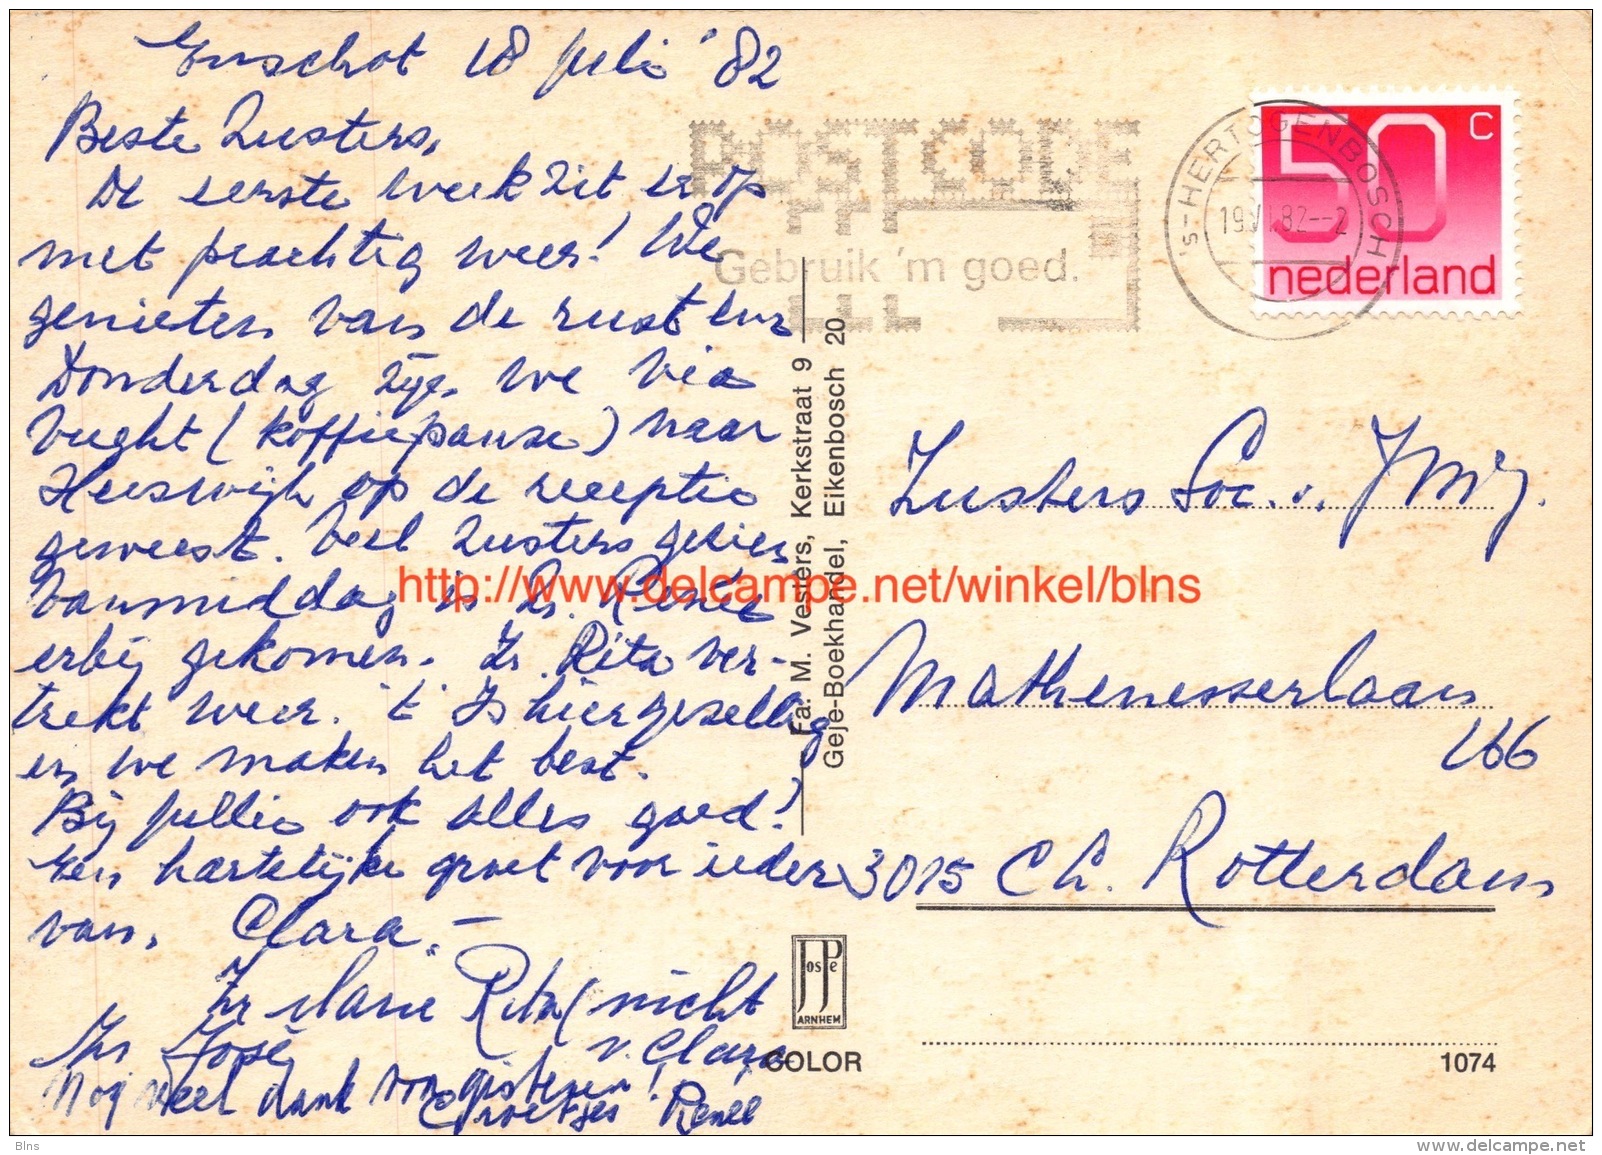 Enschot 18 juli '82
Beste Zusters,
De eerste week zit er op
met prachtig weer! We
genieten van de rust en
Donderdag zijn we via
Vught (koffiepauze) naar
Heeswijk op de receptie
geweest. Veel zusters gezien
Vanmiddag is Zr. Renée
erbij gekomen. Zr. Rita ver-
trekt weer. 't Is hier gezellig
en we maken het best.
Bij jullie ook alles goed?
Een hartelijke groet voor ieder
van, Clara.-
Zr Marie Rita (nicht
v. Clara
Zr José
Nog veel dank voor gisteren!
Groetjes Renee
POSTCODE
Gebruik 'm goed.
's-HERTOGENBOSCH
19.VII.82--2
50 C
nederland
Fa. M. Vesters, Kerkstraat 9
Geje-Boekhandel, Eikenbosch 20
Zusters Soc. v. JMJ.
Mathenesserlaan
166
3015 CL. Rotterdam
JosPe
ARNHEM
COLOR
1074
http://www.delcampe.net/winkel/blns
Blns
www.delcampe.net